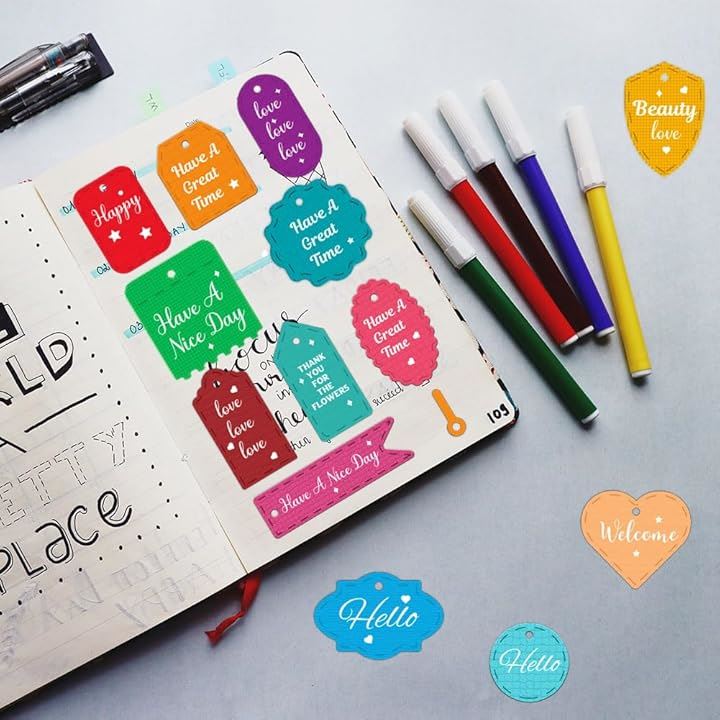 love
love
love
Have A
Great
Time
Happy
Have A
Great
Time
Have A
Nice Day
Have A
Great
Time
THANK
YOU
FOR
THE
FLOWERS
love
love
love
Have A Nice Day
109
A
ETTY
PLACe
Beauty
love
Welcome
Hello
Hello